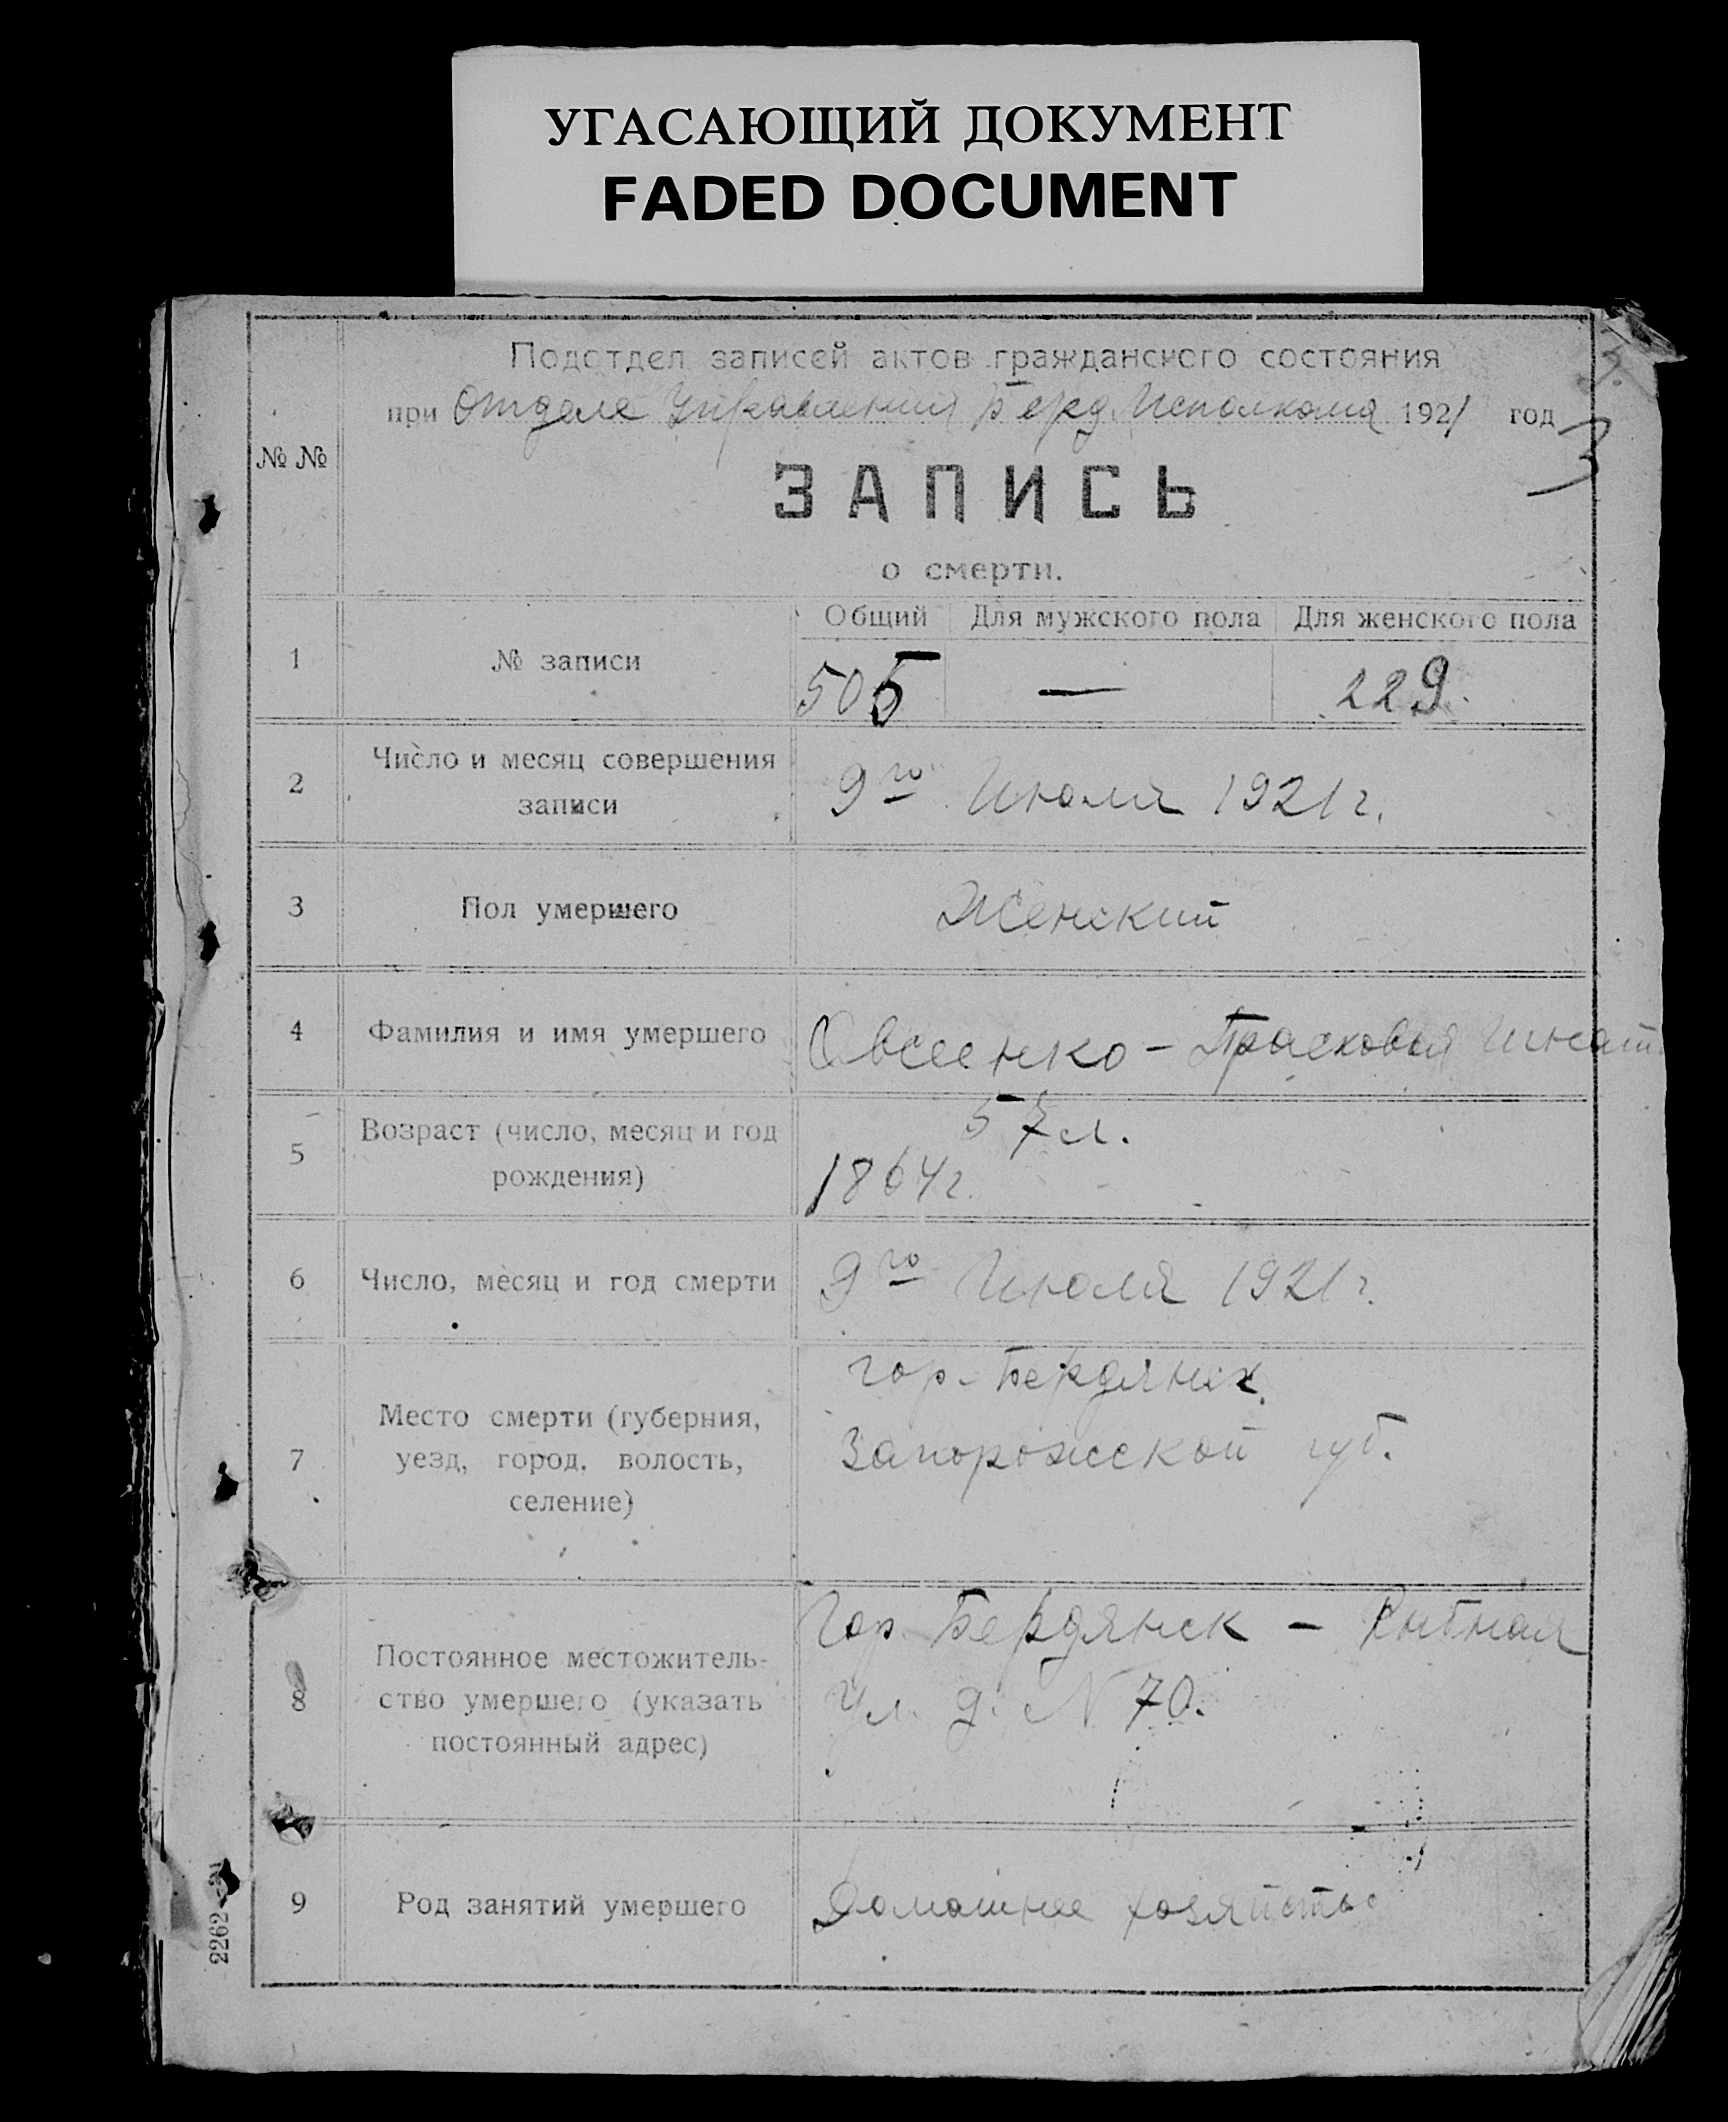 УГАСАЮЩИЙ ДОКУМЕНТ
FADED DOCUMENT
Подотдел записей актов гражданского состояния
при Отделе Управления Берд. Исполкома 1921 год
3
№ №
ЗАПИСЬ
о смерти.
Общий Для мужского пола Для женского пола
1 № записи 505 — 229.
2 Число и месяц совершения
записи
9го Июля 1921 г.
3 Пол умершего Женский
4 Фамилия и имя умершего Овсеенко – Прасковья Игнат.
5 Возраст (число, месяц и год
рождения)
57 л.
1864 г.
6 Число, месяц и год смерти 9го Июля 1921 г.
7 Место смерти (губерния,
уезд, город, волость,
селение)
гор. Бердянск
Запорожской губ.
8 Постоянное местожитель-
ство умершего (указать
постоянный адрес)
Гор. Бердянск – Рыбная
ул. д. № 70.
9 Род занятий умершего Домашнее хозяйство
2262